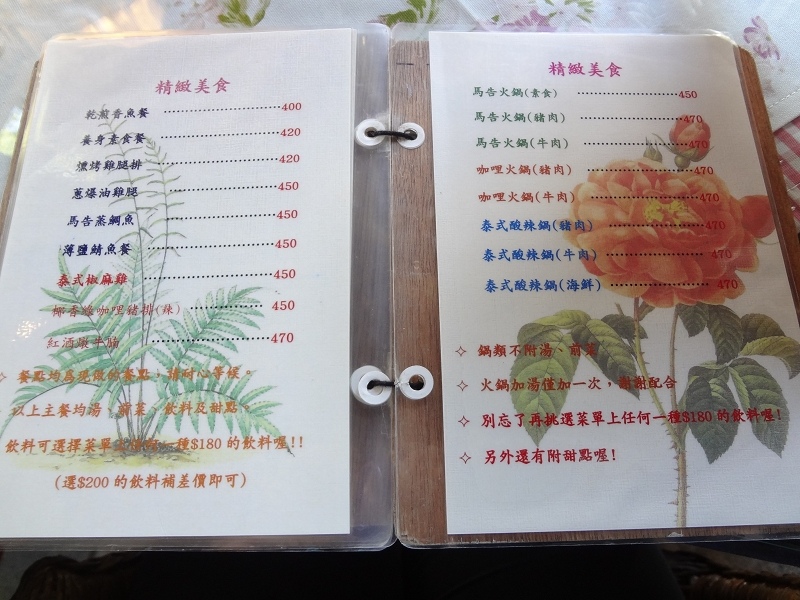 精緻美食
乾煎香魚餐 400
養身素食餐 420
燻烤雞腿排 420
蔥爆油雞腿 450
馬告蒸鯛魚 450
薄鹽鯖魚餐 450
泰式椒麻雞 450
椰香綠咖哩豬排(辣) 450
紅酒燉牛腩 470
餐點均為現做的餐點,請耐心等候。
以上主餐均湯、前菜、飲料及甜點。
飲料可選擇菜單上任何一種$180 的飲料喔!!
(選$200 的飲料補差價即可)
精緻美食
馬告火鍋(素食) 450
馬告火鍋(豬肉) 470
馬告火鍋(牛肉) 470
咖哩火鍋(豬肉) 470
咖哩火鍋(牛肉) 470
泰式酸辣鍋(豬肉) 470
泰式酸辣鍋(牛肉) 470
泰式酸辣鍋(海鮮) 470
✧ 鍋類不附湯、前菜
✧ 火鍋加湯僅加一次,謝謝配合
✧ 別忘了再挑選菜單上任何一種$180 的飲料喔!
✧ 另外還有附甜點喔!